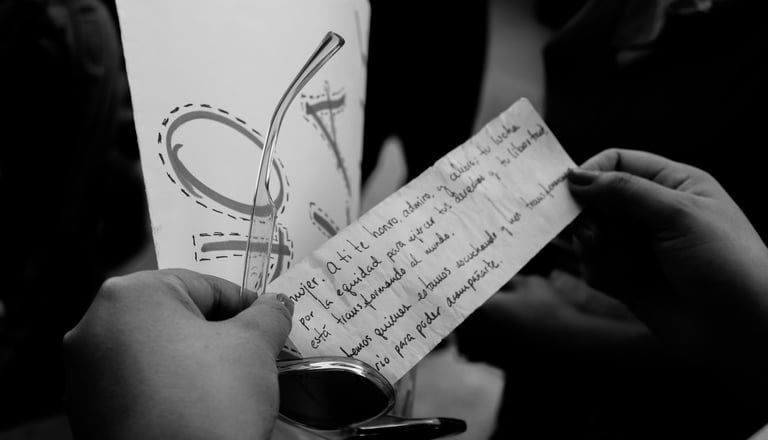 mujer. A ti te honro, admiro, y alabo tu lucha
por la equidad para ejercer tus derechos y tu libertad
está transformando al mundo.
quienes estamos escuchando y nos transformamos
rio para poder acompañarte.